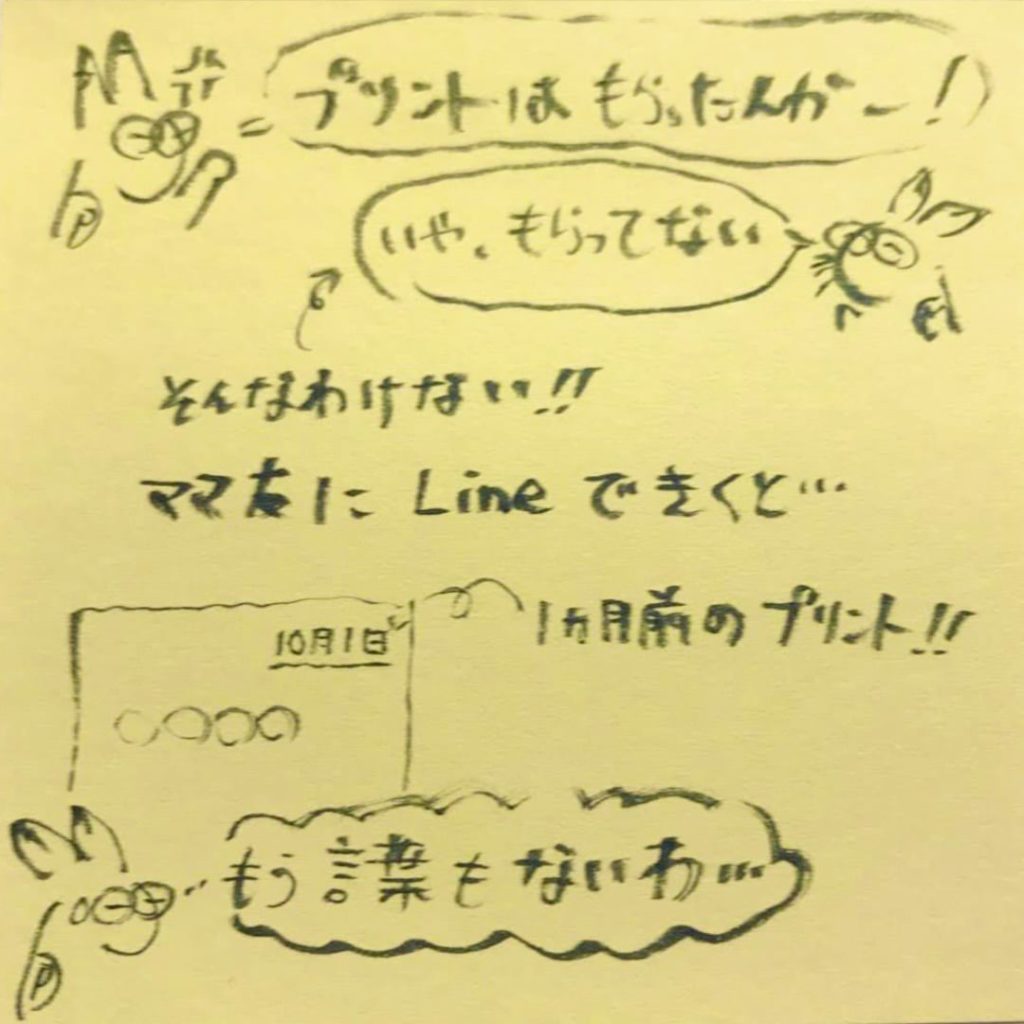 プリントは もらったんかー!
いや、もらってない
そんなわけない!!
ママ友に Lineできくと…
1ヵ月前のプリント!!
10月1日
〇〇〇〇
もう言葉もないわ…